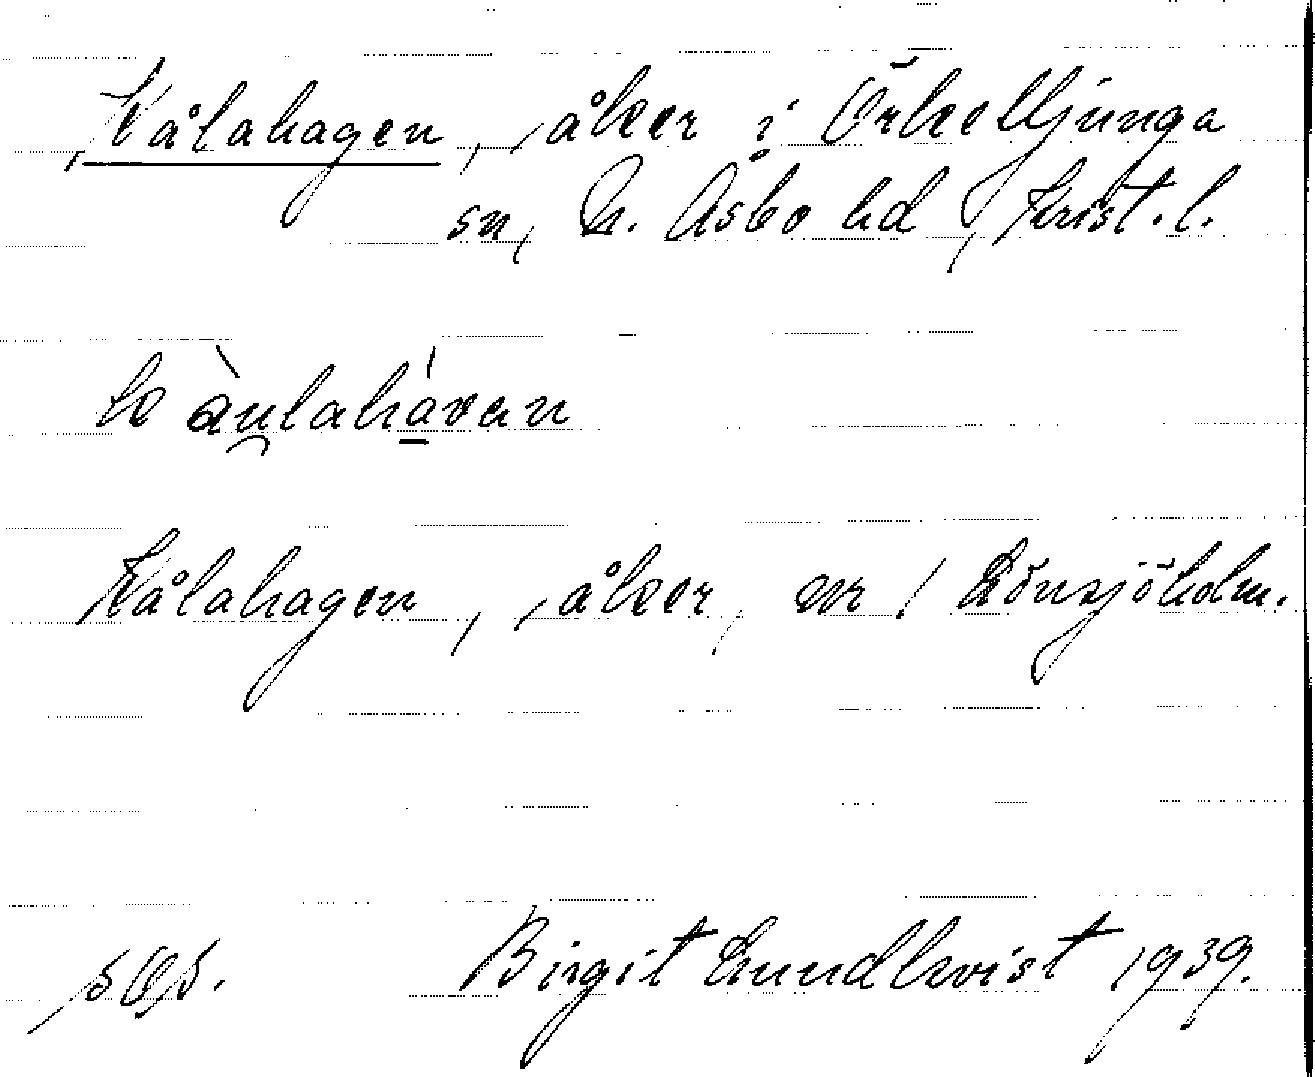 Kålahagen, åker i Örkelljunga
sn, N. Åsbo hd, Krist. l.
k àu̯lahávan
Kålahagen, åker, nr 1 Lönsjöholm.
Birgit Lundkvist 1939.